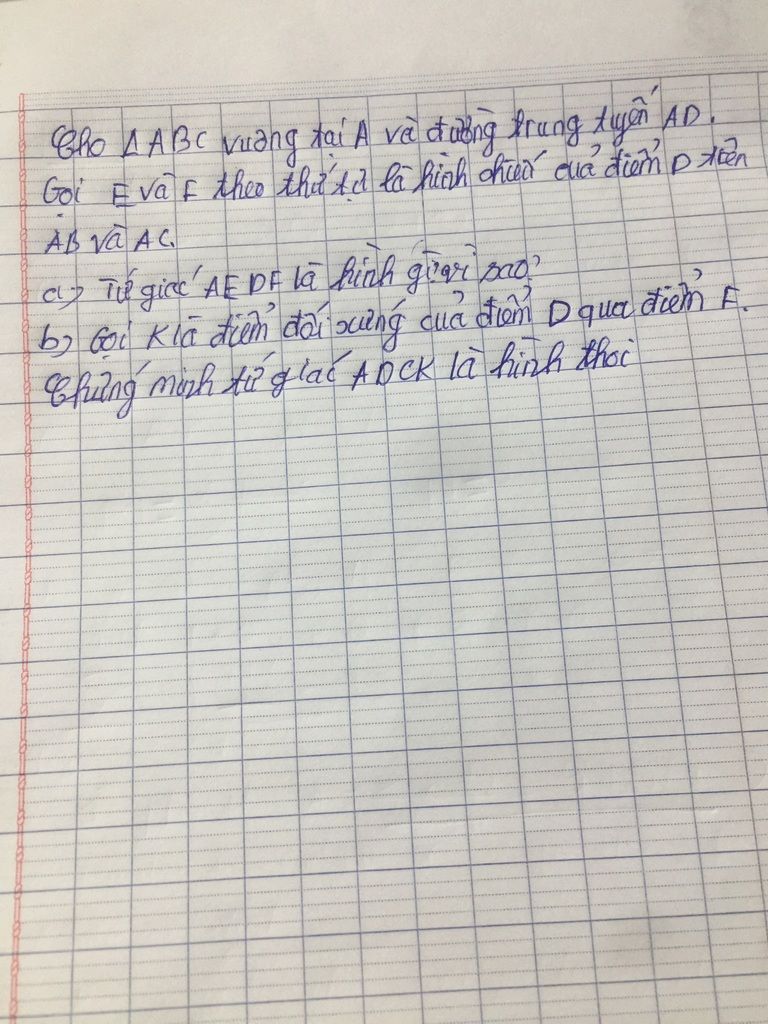 Cho ΔABC vuông tại A và đường trung tuyến AD.
Gọi E và F theo thứ tự là hình chiếu của điểm D trên
AB và AC.
a) Tứ giác AEDF là hình gì vì sao?
b) Gọi K là điểm đối xứng của điểm D qua điểm F.
Chứng minh tứ giác ADCK là hình thoi